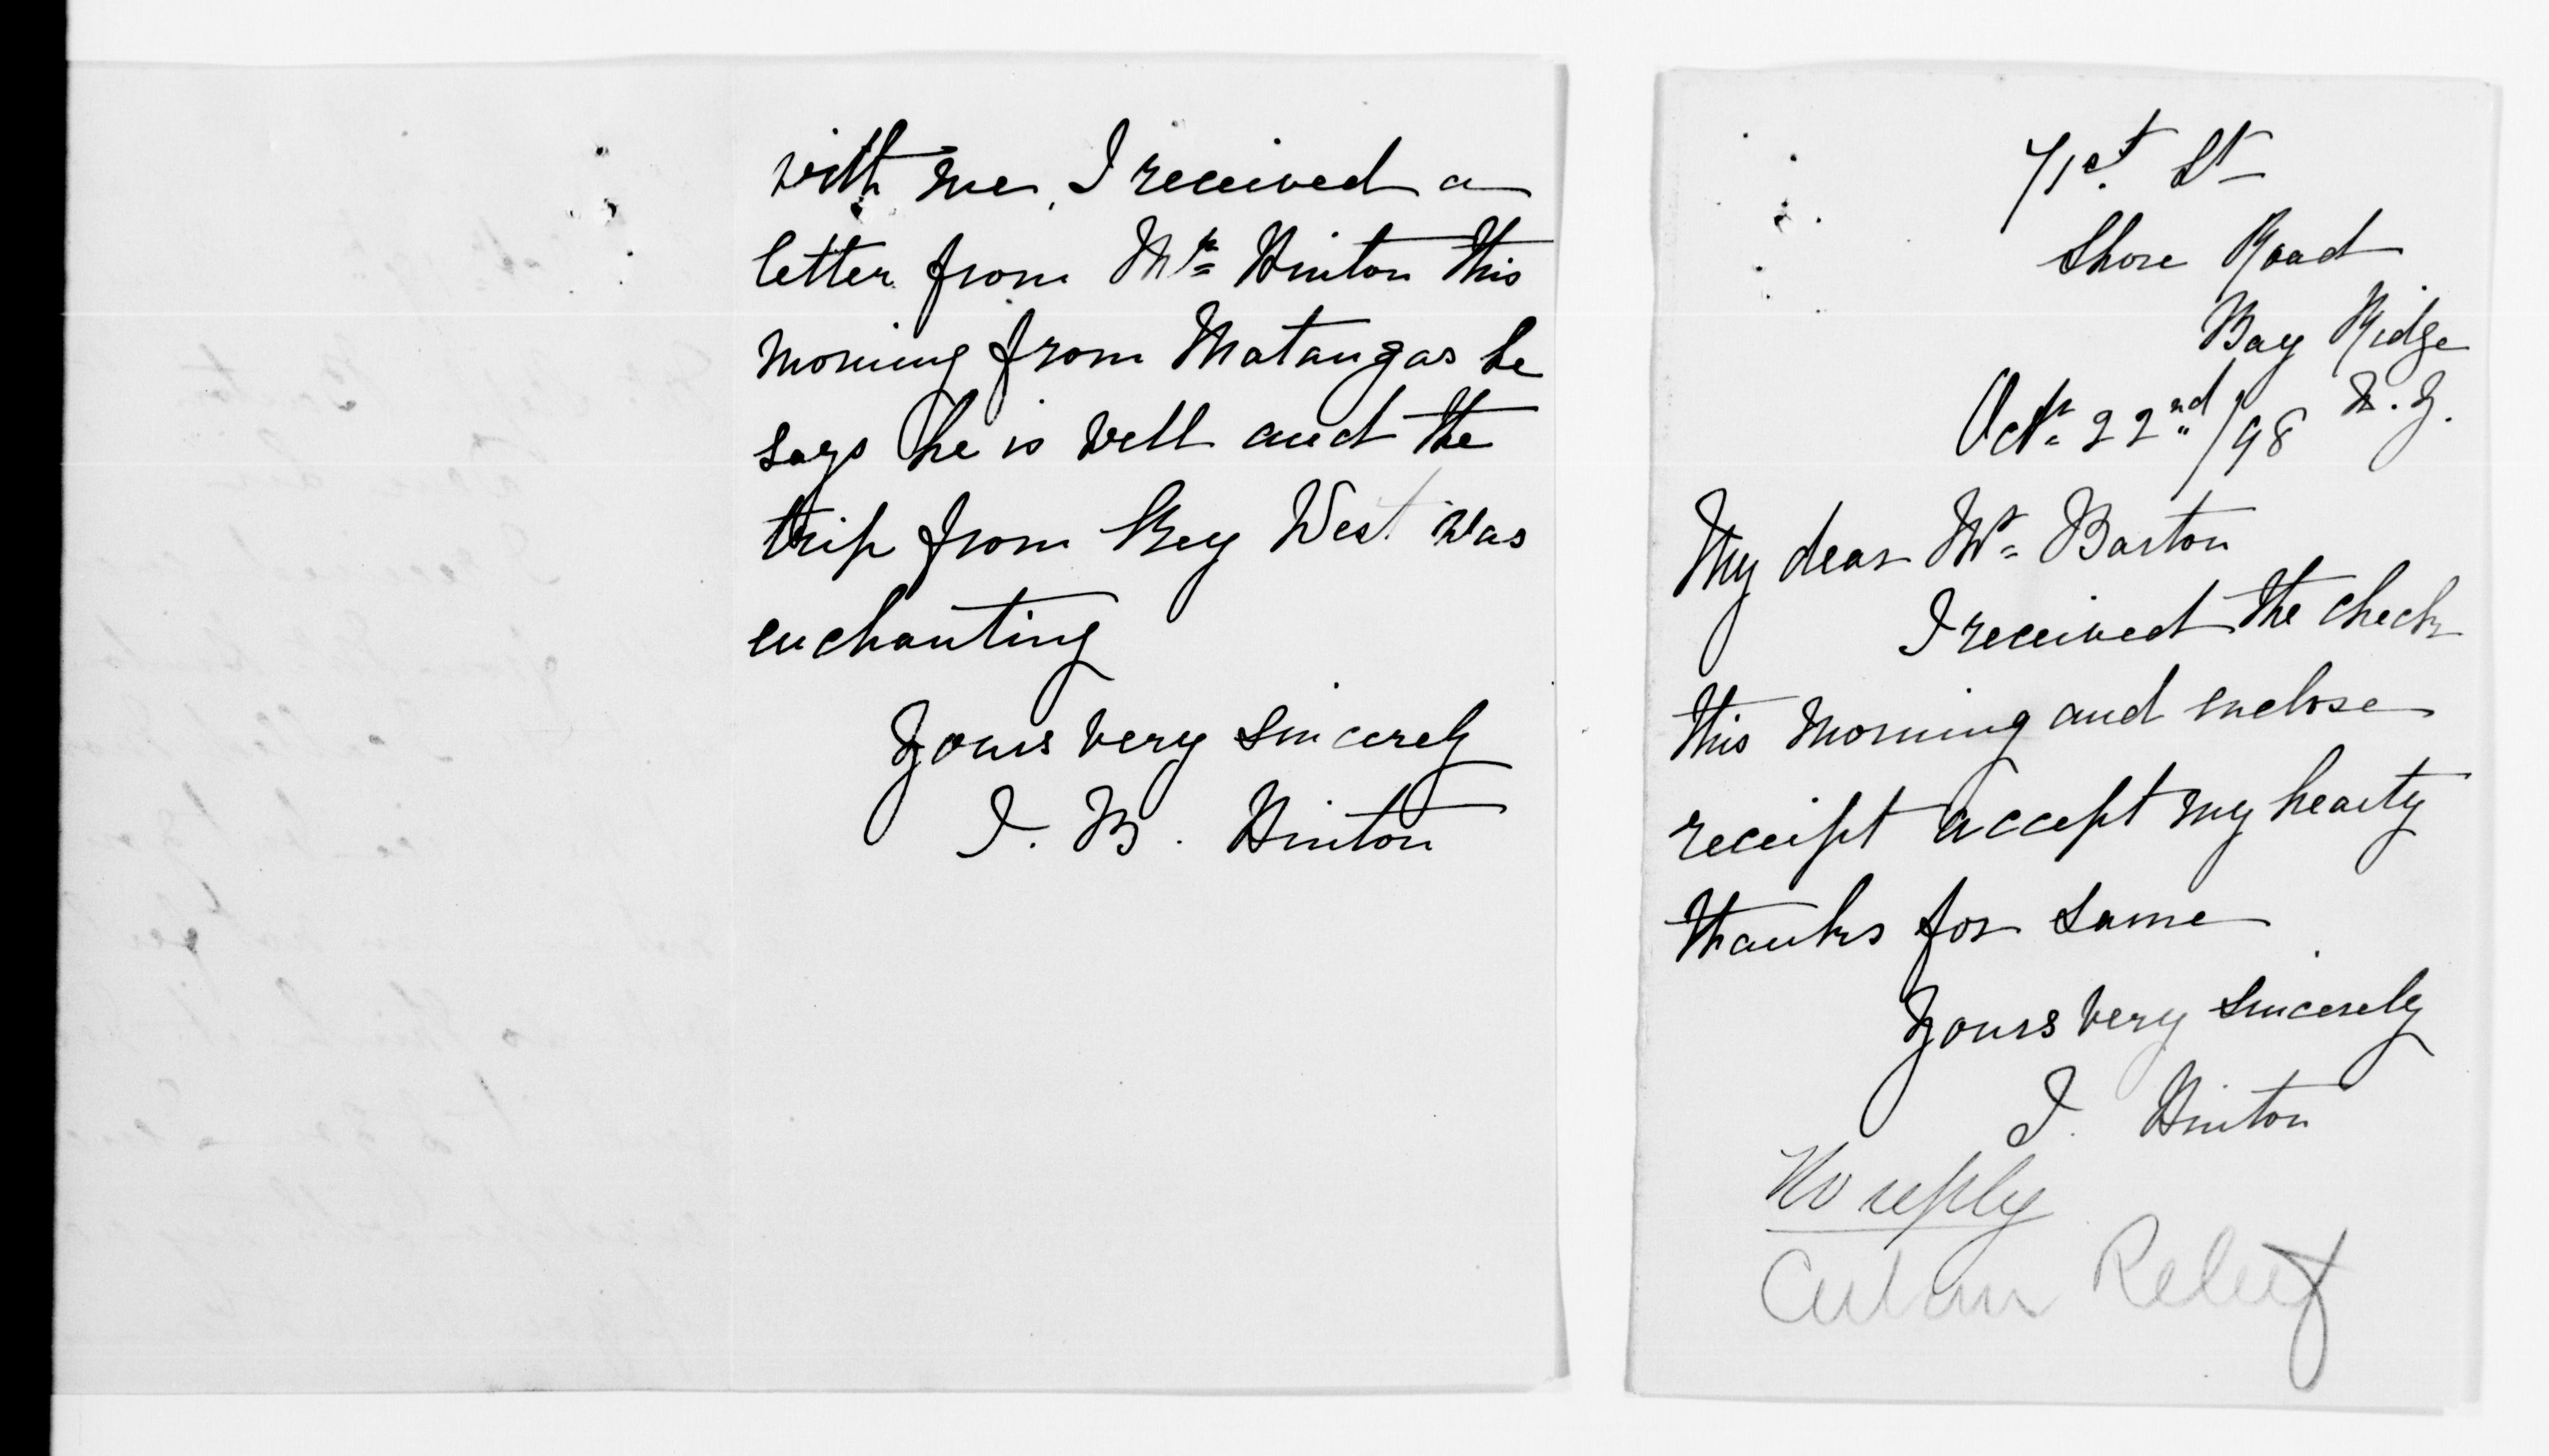 with me, I received a
letter from Mr. Hinton this
morning from Matangas he
says he is well and the
trip from Key West was
enchanting
Yours very sincerely
I. B. Hinton
71st. St
Shore Road
Bay Ridge
N.Y.
Octr. 22nd/98
My dear Mr. Barton
I received the check
this morning and enclose
receipt accept my hearty
thanks for same
Yours very sincerely
I. Hinton
No reply
Cuban Relief